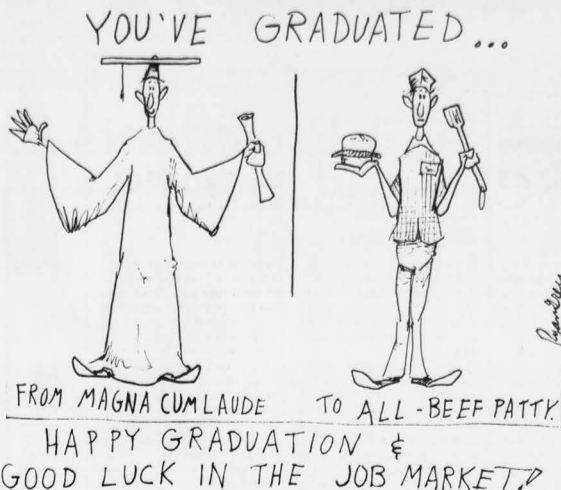 YOU'VE GRADUATED...
FROM MAGNA CUM LAUDE
TO ALL-BEEF PATTY.
HAPPY GRADUATION &
GOOD LUCK IN THE JOB MARKET!